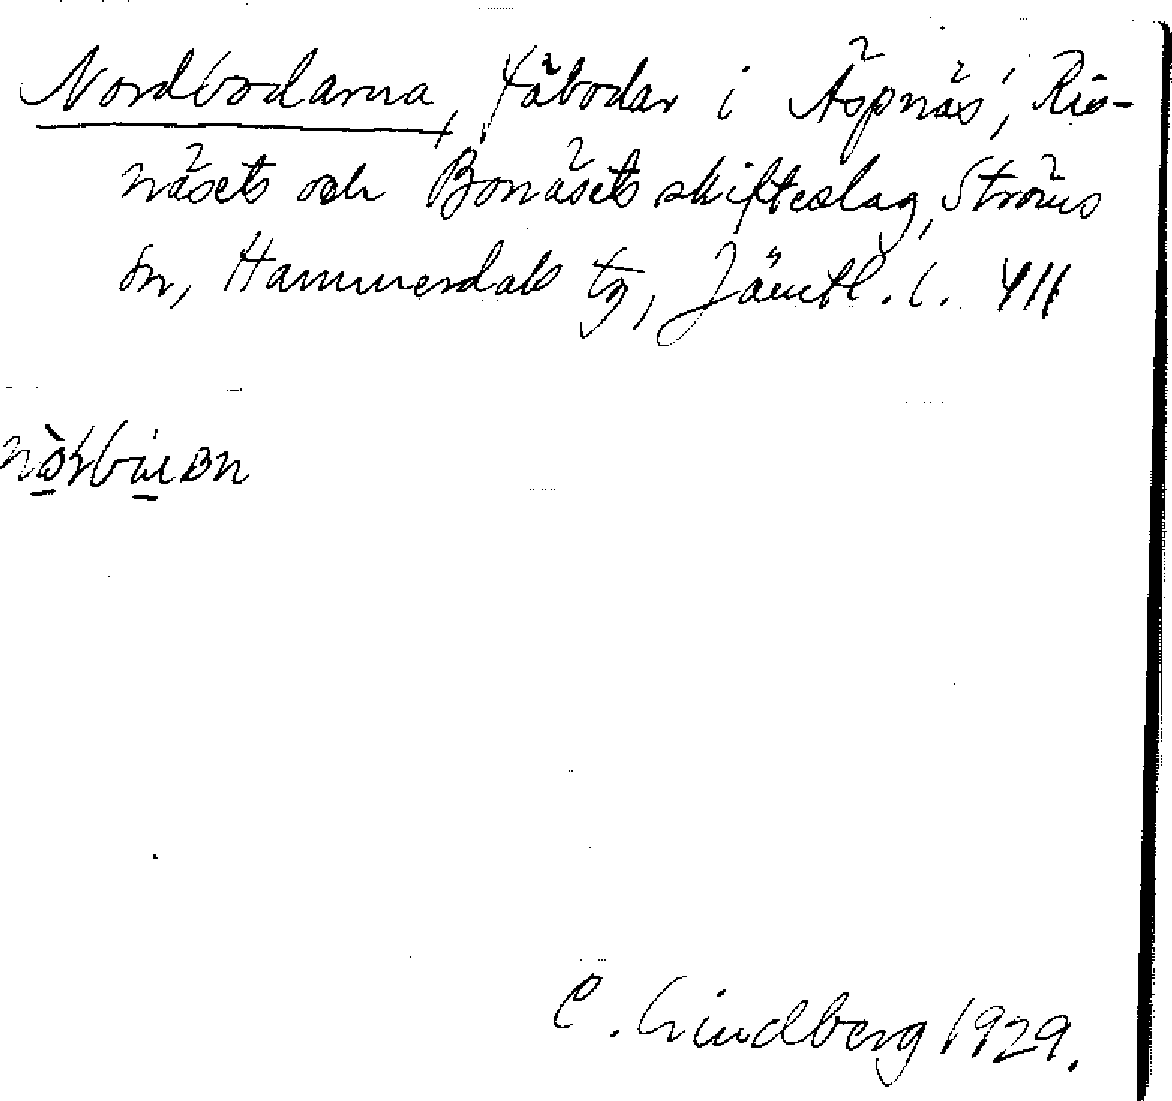 Nordbodarna, fäbodar i Äspnäs, Ris-
näsets och Bonäsets skifteslag, Ströms
sn, Hammerdals tg, Jämtl. l.
C. Lindberg 1929.